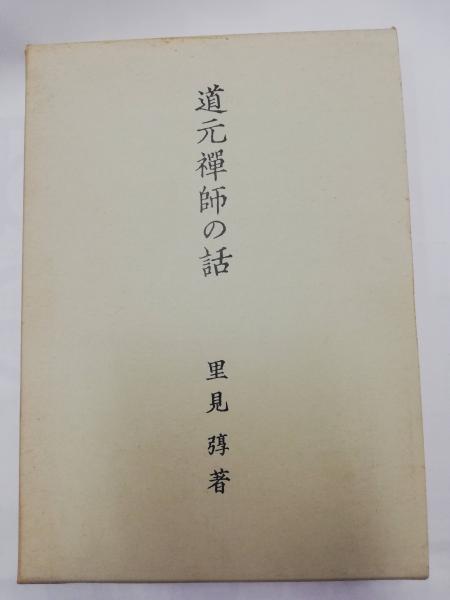 道元禪師の話
里見弴著